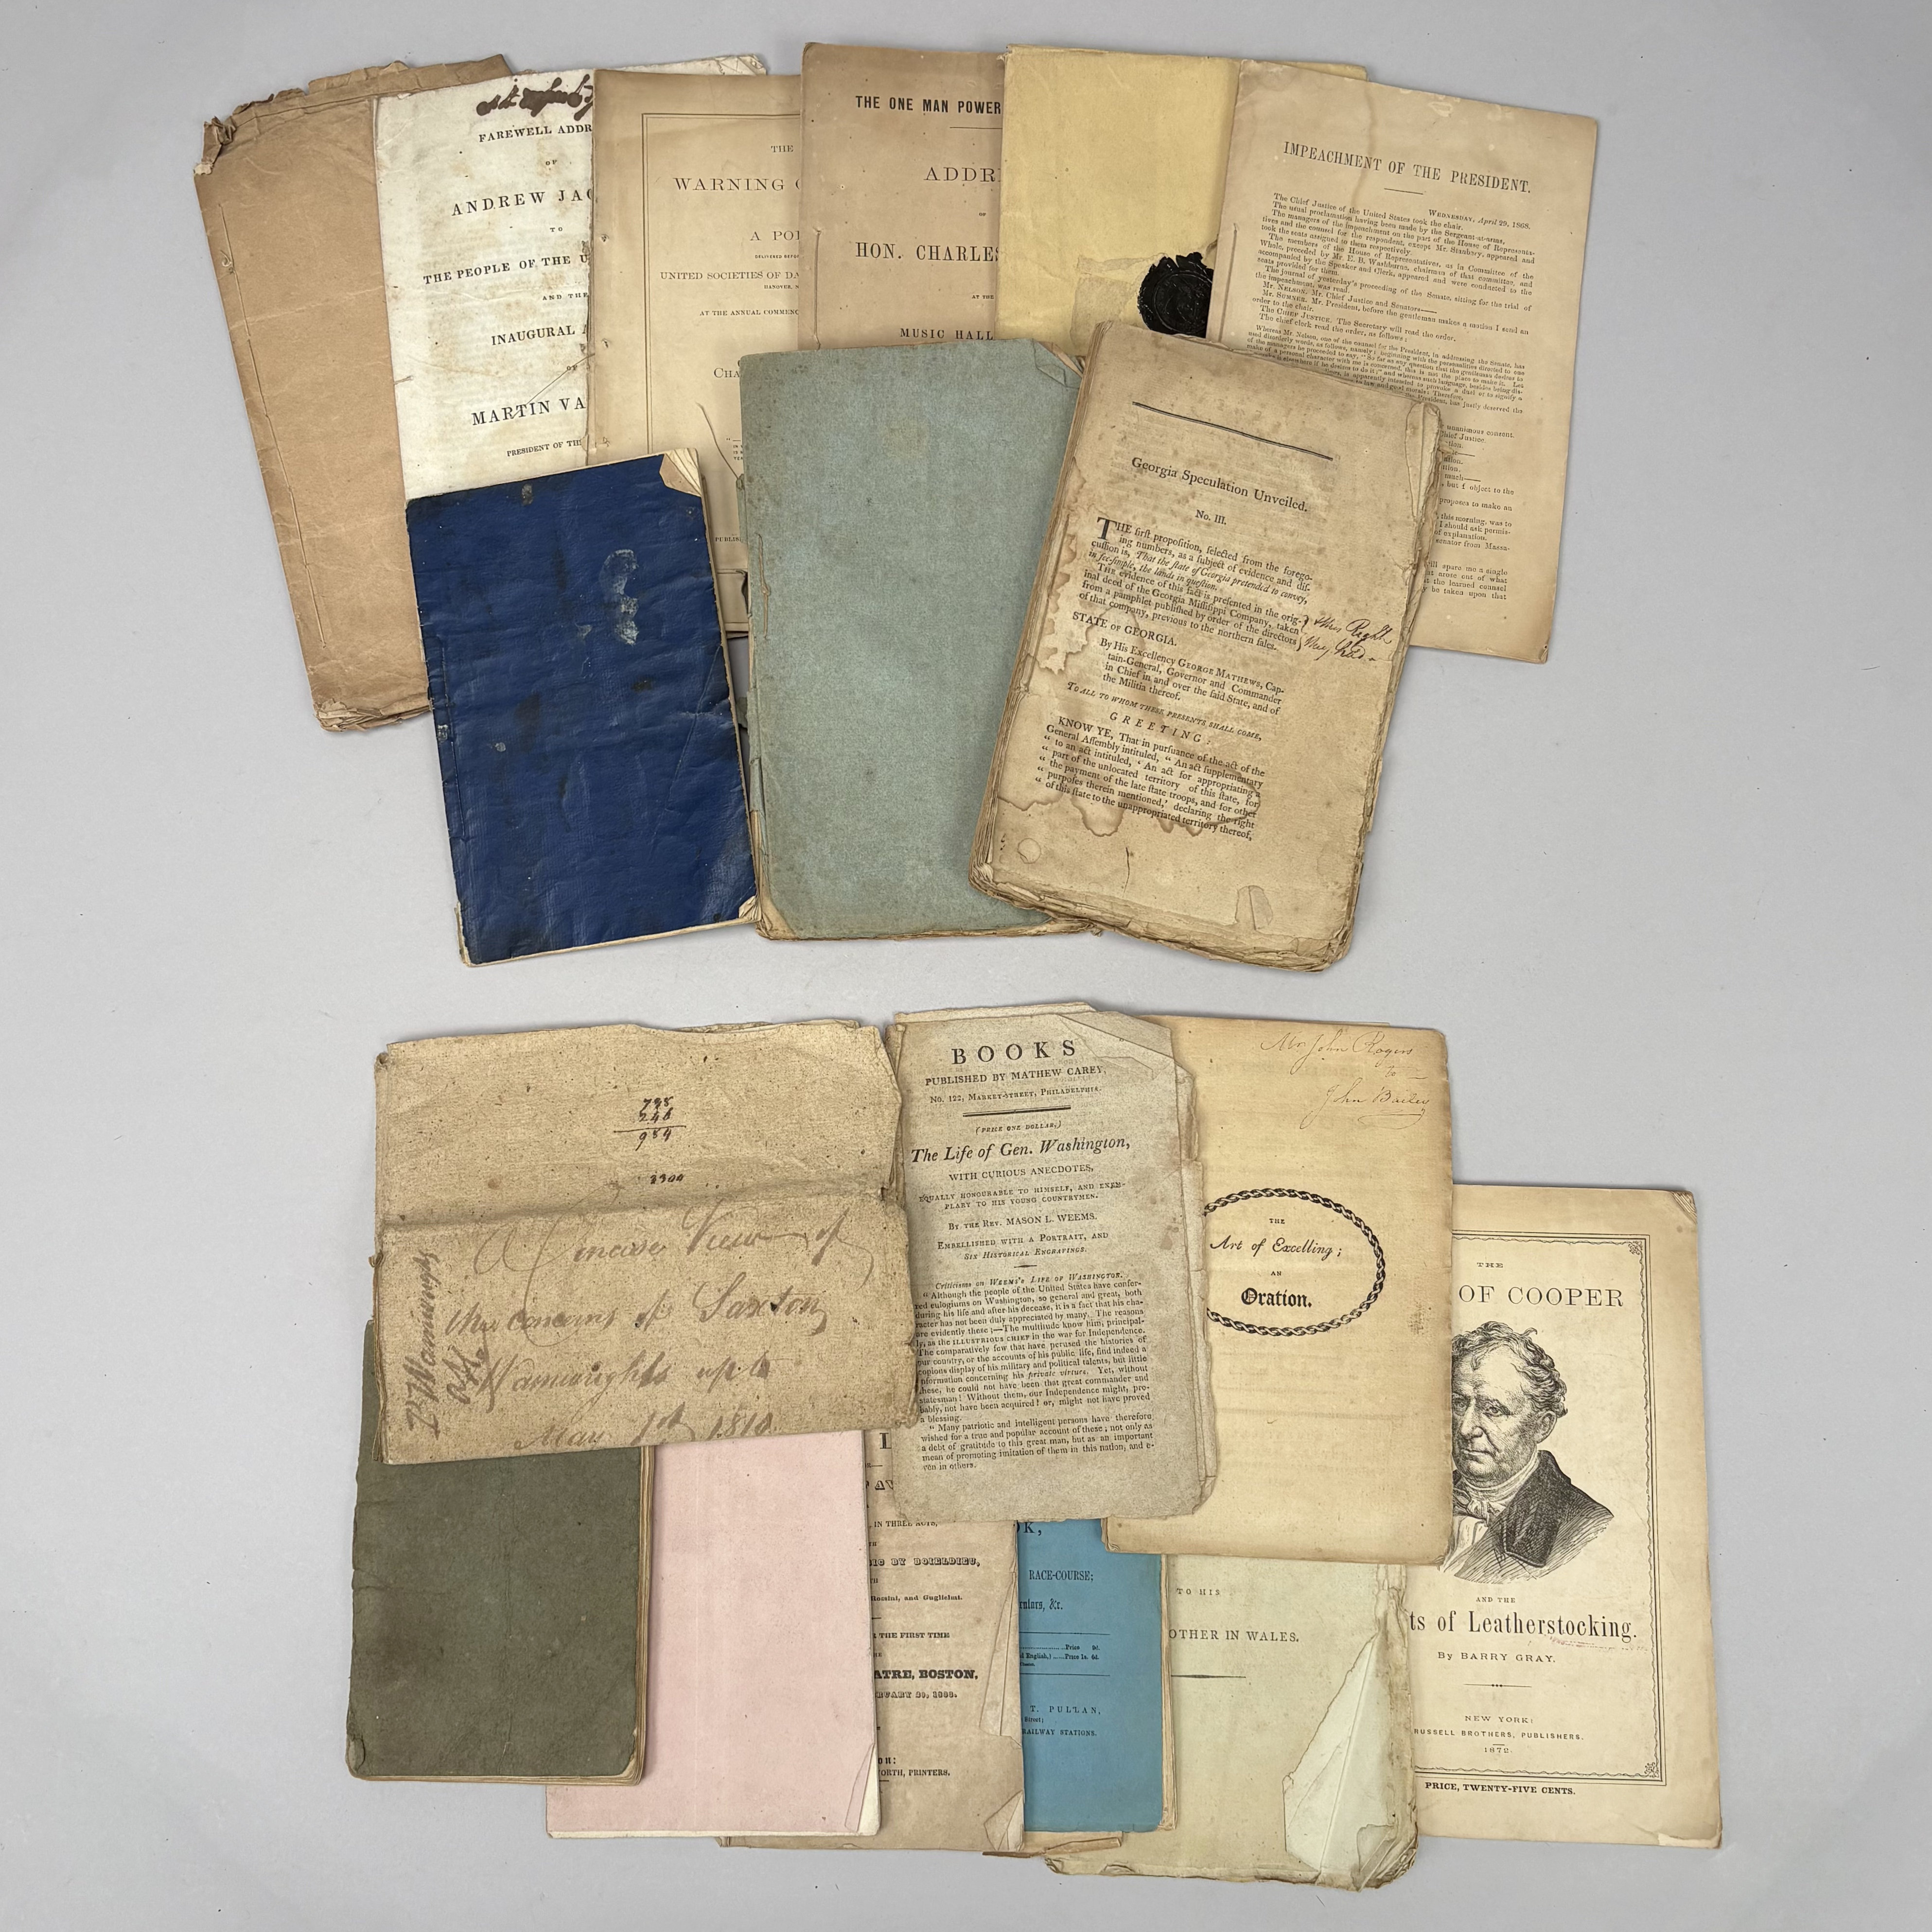 FAREWELL ADDR
OF
ANDREW JAC
TO
THE PEOPLE OF THE U
AND THE
INAUGURAL A
OF
MARTIN VA
PRESIDENT OF THE
THE
WARNING
A PO
DELIVERED BEFO
UNITED SOCIETIES OF DA
HANOVER, N
AT THE ANNUAL COMMENC
CHA
PUBLIS
THE ONE MAN POWER
ADDR
OF
HON. CHARLES
AT THE
MUSIC HALL
IMPEACHMENT OF THE PRESIDENT.
WEDNESDAY, April 29, 1868.
The Chief Justice of the United States took the chair.
The usual proclamation having been made by the Sergeant-at-arms,
The managers of the impeachment on the part of the House of Representa-
tives and the counsel for the respondent, except Mr. Stanbery, appeared and
took the seats assigned to them respectively.
The members of the House of Representatives, as in Committee of the
Whole, preceded by Mr. E. B. Washburne, chairman of that committee, and
accompanied by the Speaker and Clerk, appeared and were conducted to the
seats provided for them.
The journal of yesterday's proceeding of the Senate, sitting for the trial of
the impeachment, was read.
Mr. NELSON. Mr. Chief Justice and Senators——
Mr. SUMNER. Mr. President, before the gentleman makes a motion I send an
order to the chair.
The CHIEF JUSTICE. The Secretary will read the order.
The chief clerk read the order, as follows:
Whereas Mr. Nelson, one of the counsel for the President, in addressing the Senate, has
used disorderly words, as follows, namely: beginning with the personalities directed to one
of the managers he proceeded to say, "So far as any question that the gentleman desires to
make of a personal character with me is concerned, this is not the place to make it. Let
elsewhere if he desires to do it;" and whereas such language, besides being dis-
is apparently intended to provoke a duel or to signify a
to law and good morals: Therefore,
the President, has justly deserved the
unanimous consent.
Chief Justice.
tion.
tion.
much——
, but I object to the
proposes to make an
, this morning, was to
I should ask permis-
of explanation.
senator from Massa-
will spare me a single
at arose out of what
t the learned counsel
y be taken upon that
Georgia Speculation Unveiled.
No. III.
THE first proposition, selected from the forego-
ing numbers, as a subject of evidence and dis-
cussion is, That the state of Georgia pretended to convey,
in fee-simple, the lands in question.
THE evidence of this fact is presented in the orig-
inal deed of the Georgia Missisippi Company, taken
from a pamphlet published by order of the directors
of that company, previous to the northern sales.
this Right
they had
STATE OF GEORGIA.
By His Excellency GEORGE MATHEWS, Cap-
tain-General, Governor and Commander
in Chief in and over the said State, and of
the Militia thereof.
TO ALL TO WHOM THESE PRESENTS SHALL COME,
GREETING:
KNOW YE, That in pursuance of the act of the
General Assembly intituled, " An act supplementary
" to an act intituled, ' An act for appropriating a
" part of the unlocated territory of this state, for
" the payment of the late state troops, and for other
" purposes therein mentioned,' declaring the right
of this state to the unappropriated territory thereof,
738
246
984
2300
A Concise View of
the concerns of Saxton
& Wainwrights up to
May 1st 1810
BOOKS
PUBLISHED BY MATHEW CAREY,
No. 122, MARKET-STREET, PHILADELPHIA.
(PRICE ONE DOLLAR,)
The Life of Gen. Washington,
WITH CURIOUS ANECDOTES,
EQUALLY HONOURABLE TO HIMSELF, AND EXEM-
PLARY TO HIS YOUNG COUNTRYMEN.
By THE REV. MASON L. WEEMS.
EMBELLISHED WITH A PORTRAIT, AND
SIX HISTORICAL ENGRAVINGS.
Criticisms on WEEMS'S LIFE OF WASHINGTON.
" Although the people of the United States have confer-
red eulogiums on Washington, so general and great, both
during his life and after his decease, it is a fact that his cha-
racter has not been duly appreciated by many. The reasons
are evidently these;—The multitude know him, principal-
ly, as the ILLUSTRIOUS CHIEF in the war for Independence.
The comparatively few that have perused the histories of
our country, or the accounts of his public life, find indeed a
copious display of his military and political talents, but little
information concerning his private virtues. Yet, without
these, he could not have been that great commander and
statesman! Without them, our Independence might, pro-
bably, not have been acquired! or, might not have proved
a blessing.
" Many patriotic and intelligent persons have therefore
wished for a true and popular account of these; not only as
a debt of gratitude to this great man, but as an important
mean of promoting imitation of them in this nation, and e-
ven in others.
Mr John Rogers
to
John Bailey
THE
Art of Excelling;
AN
Oration.
THE
OF COOPER
AND THE
ts of Leatherstocking.
By BARRY GRAY.
NEW YORK:
RUSSELL BROTHERS, PUBLISHERS.
1872.
PRICE, TWENTY-FIVE CENTS.
, IN THREE ACTS,
SIC BY BOIELDIEU,
Rossini, and Guglielmi.
THE FIRST TIME
ATRE, BOSTON,
ORTH, PRINTERS.
OK,
RACE-COURSE;
&c.
Price 2d.
English,) ..... Price 1s. 6d.
T. PULLAN,
Street;
RAILWAY STATIONS.
TO HIS
OTHER IN WALES.